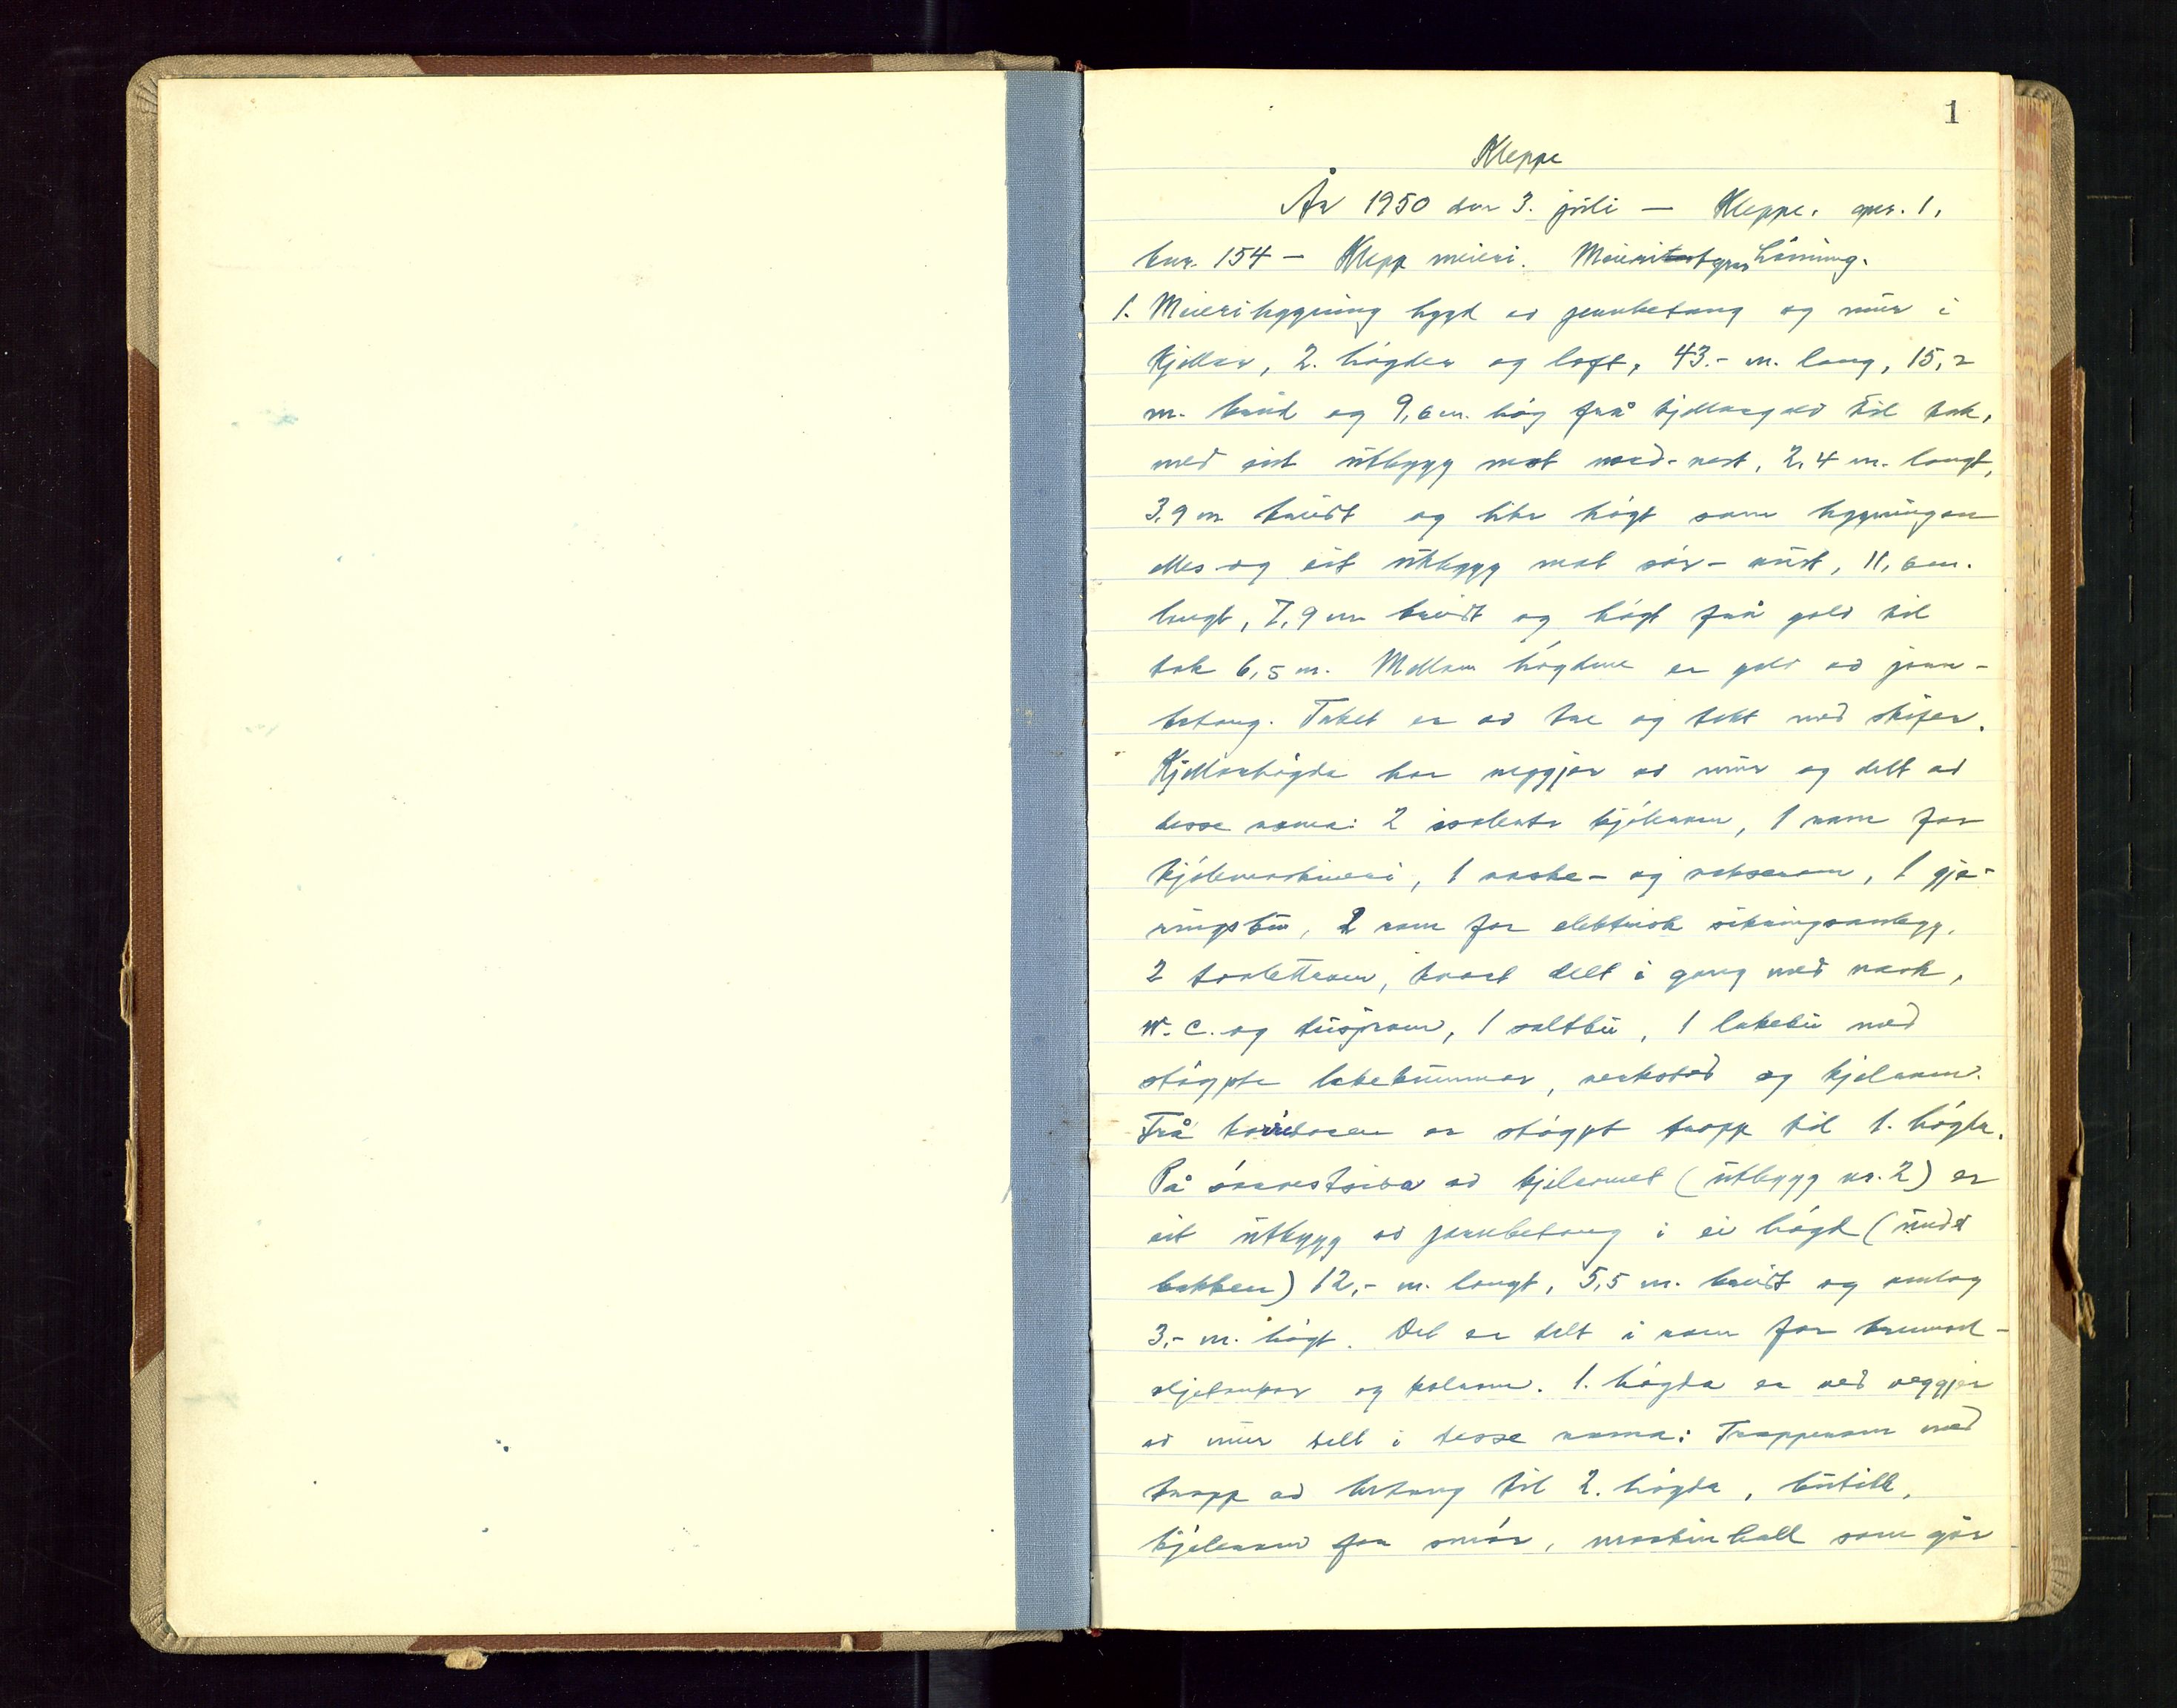 1
Kleppe
År 1950 den 3. júli — Kleppe. gnr. 1,
bnr. 154 — Klepp meieri. Meieristyrar Löining.
1. Meieribygning bygd av jernbetong og múr i
kjellar, 2. högder og loft, 43.- m. lang, 15,2
m. breid og 9,6 m. hög frå kjellargolv til tak,
med eit útbygg mot nord-vest, 2,4 m. langt,
3,9 m breidt og like högt som bygningen
elles og eit útbygg mot sör-aúst, 11,6 m.
langt, 7,9 m breidt og högt frå golv til
tak 6,5 m. Mellom högdene er golv av jern-
betong. Taket er av tre og tekt med skifer.
Kjellarhögda har veggjer av múr og delt av
desse roma: 2 isolerte kjölerom, 1 rom for
kjölemaskineri, 1 vaske- og voksерom, 1 gjæ-
ringsbú, 2 rom for elektrisk sikringsanlegg,
2 toalettrom, kvart delt i gang med vask,
W.C. og dúsjrom, 1 saltbú, 1 lakebú med
stöypte lakekúmmar, verkstad og kjelerom.
Frå korridoren er stöypt trapp til 1. högda.
På óvanestsida av kjelromet (útbygg nr. 2) er
eit útbygg av jernbetong i ei högd (únder
bakken) 12,- m. langt, 5,5 m. breidt og omlag
3,- m. högt. Det er delt i rom for brennol-
jetankar og kolrom. 1. högda er ved veggjer
av múr delt i desse roma: Trapperom med
trapp av betong til 2. högda, bútikk,
kjölerom for smör, maskinhall som går